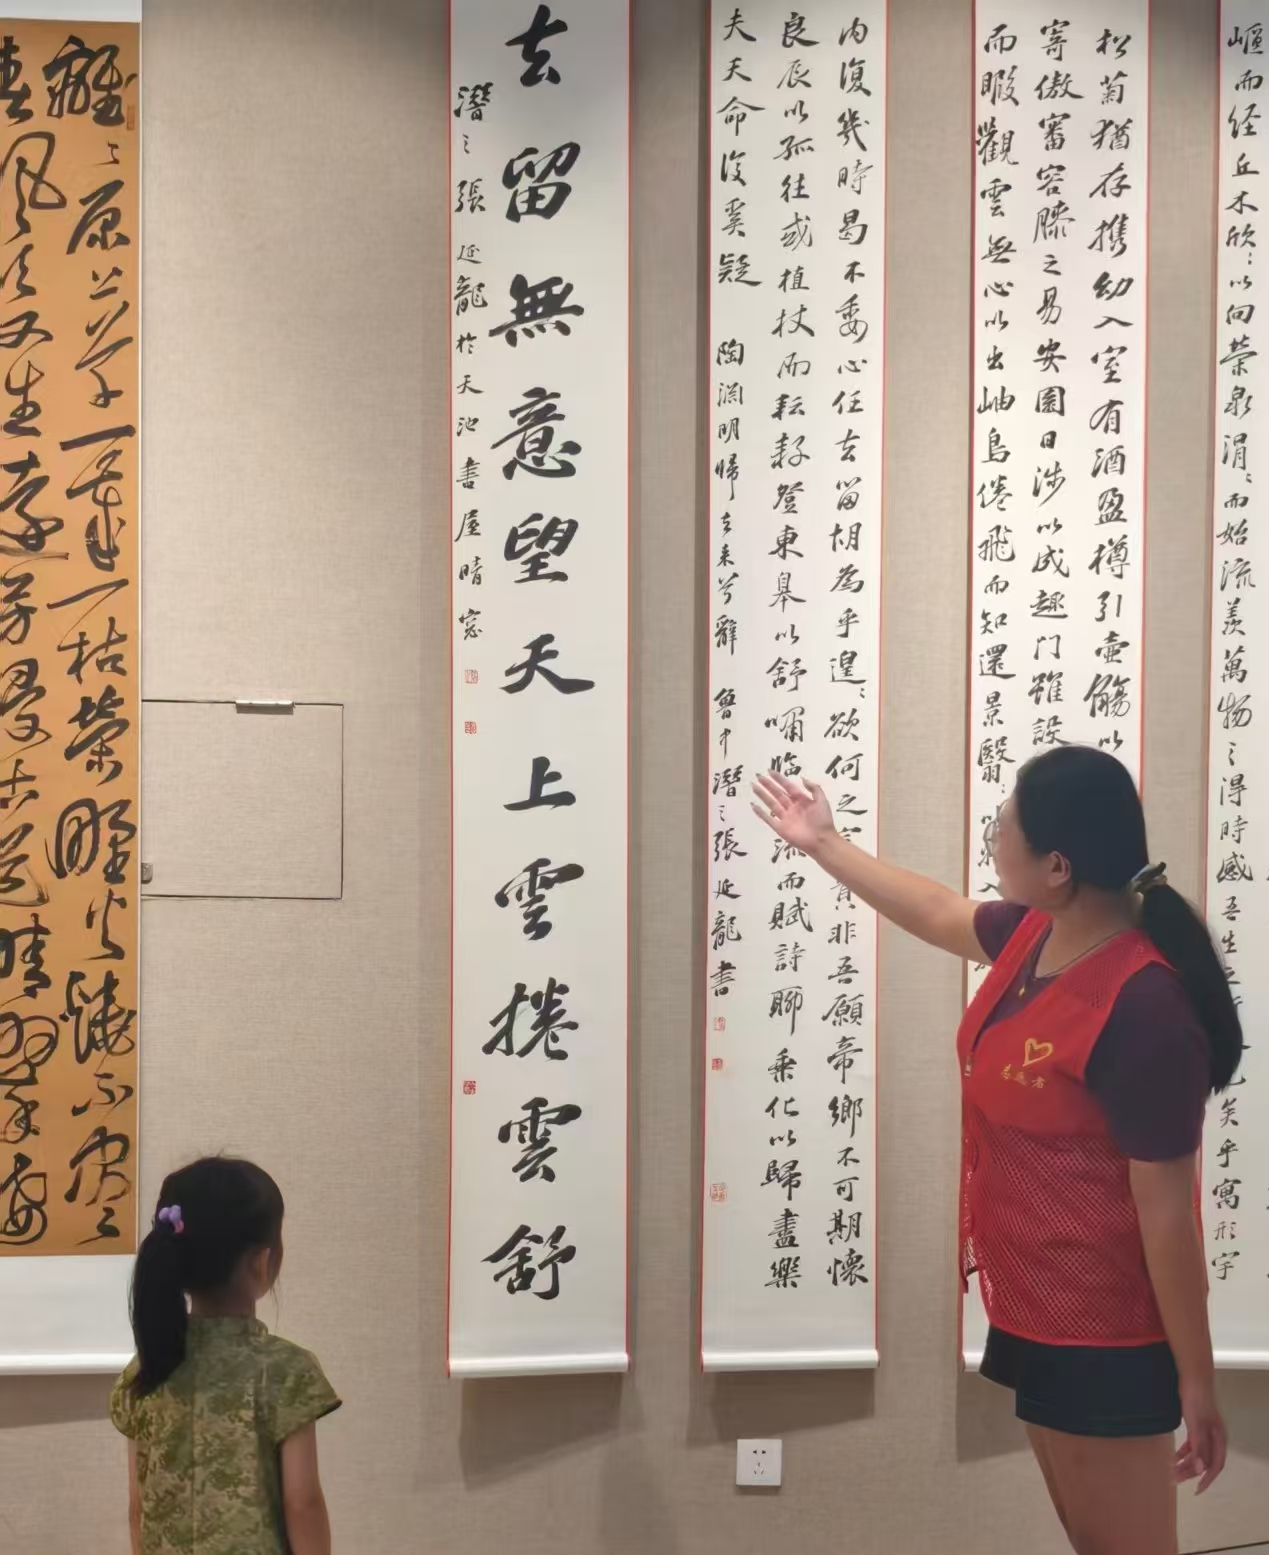 嶇而经丘木欣〻以向荣泉涓〻而始流羡萬物之得時感吾生之
矣乎寓形宇
松菊猶存携幼入室有酒盈樽引壶觴以
寄傲審容膝之易安園日涉以成趣门雖設
而暇觀雲無心以出岫鳥倦飛而知還景翳〻以
内復幾時曷不委心任去留胡為乎遑〻欲何之富貴非吾願帝鄉不可期懷
良辰以孤往或植杖而耘耔登東皋以舒嘯臨流而賦詩聊乘化以歸盡樂
夫天命復奚疑 陶渊明歸去来兮辭 魯中潛之張延龍書
去留無意望天上雲捲雲舒
潛之張延龍於天池書屋晴窓
離〻原上草一歲一枯榮野火燒不盡
春風吹又生遠芳侵古道晴翠接
志愿者